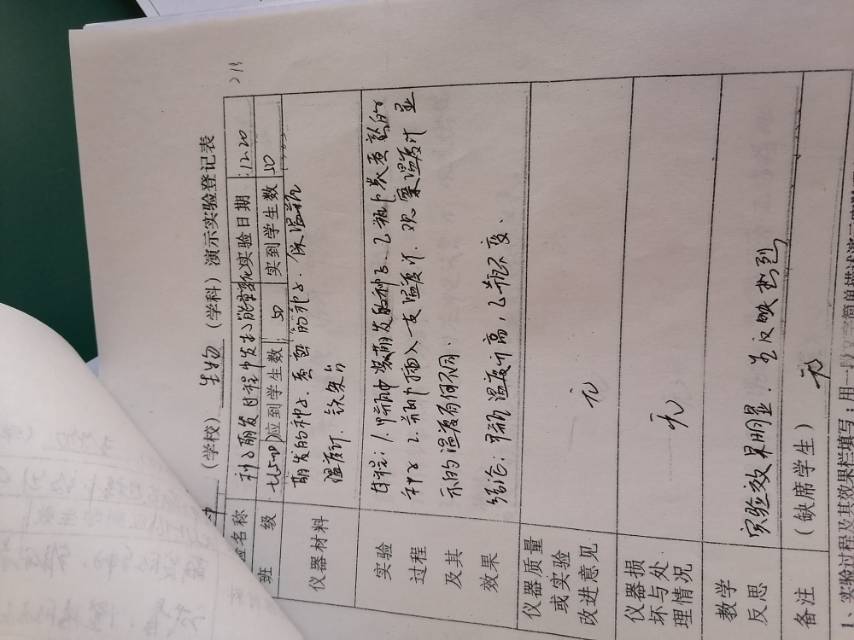 （学校）生物（学科）演示实验登记表
验名称 种子萌发过程中发生能量变化 实验日期 12.20
班 级 应到学生数 50 实到学生数 50
仪器材料 萌发的种子、煮熟的种子、保温瓶
温度计、铁架台
实验过程及其效果 过程：1.甲瓶中装萌发的种子、乙瓶中装煮熟的
种子 2.瓶中插入一支温度计，观察温度计显
示的温度有何不同。
结论：甲瓶温度升高，乙瓶不变、
仪器质量或实验改进意见 无
仪器损坏与处理情况 无
教学反思 实验效果明显，生反映热烈
备注 （缺席学生） 无
1、实验过程及其效果栏填写：用一段文字简单描述演示实验